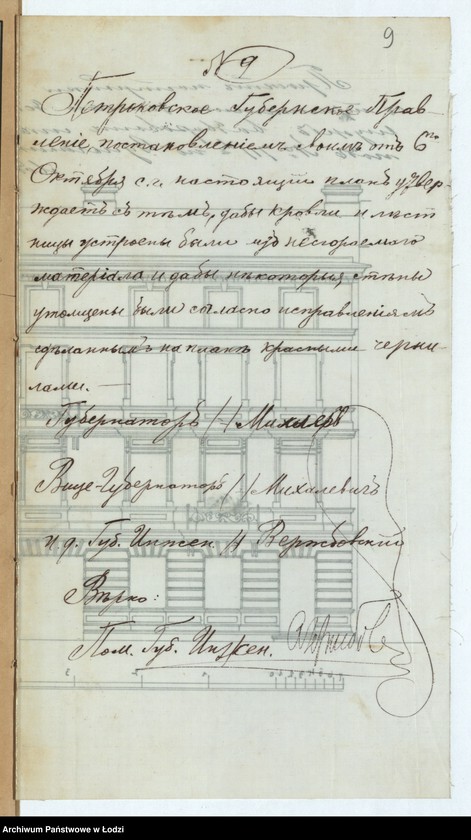 9
№ 9
Петроковское Губернское Прав-
леніе, постановленіемъ своимъ отъ 6го
Октября с.г. настоящій планъ утвер-
ждаетъ съ тѣмъ, дабы кровли и лѣст
ницы устроены были изъ несгораемаго
матеріала и дабы нѣкоторыя стѣны
утолщены были согласно исправленіямъ
сдѣланнымъ на планѣ красными черни
лами. —
Губернаторъ /-/ Миллеръ
Вице-Губернаторъ /-/ Михалевичъ
и. д. Губ. Инжен. /-/ Вержбовскій
Вѣрно:
Пом. Губ. Инжен.
Archiwum Państwowe w Łodzi